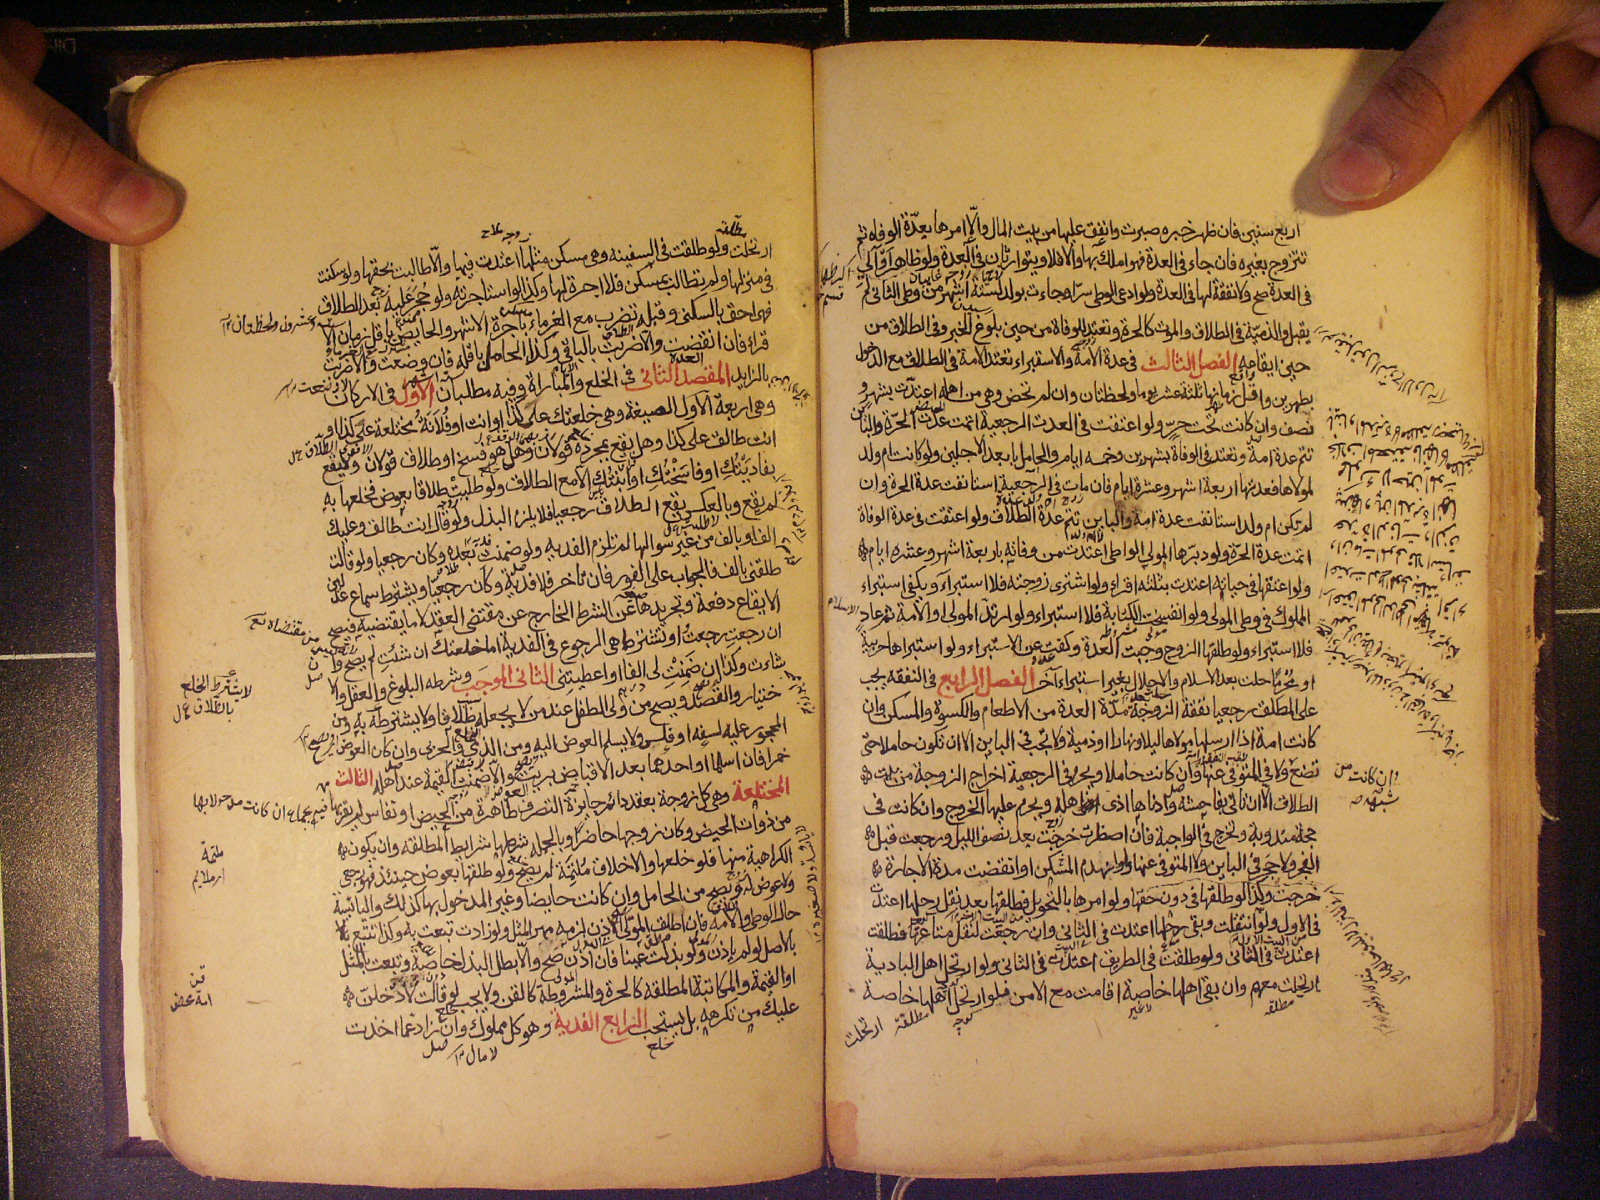 اربع سنين فان ظهر خبره صبرت وانفق عليها من بيت المال والا امرها بعدة الوفاه ثم
تتزوج بغيره فان جاء في العدة فهو املك بها والا فلا ويتوارثان في العدة ولو ظاهر او آلى
في العدة صح ولا نفقة لها في العدة ولو ادعى الوطى سرا وجاءت بولد لستة اشهر من وطى الثاني لم
يقبل والذمية في الطلاق والموت كالحرة وتعتد للوفاة من حين بلوغ الخبر وفي الطلاق من
حين ايقاعه الفصل الثالث في عدة الامة والاستبراء تعتد الامة في الطلاق مع الدخول
بطهرين واقل زمانها ثلثة عشر يوما ولحظتان وان لم تحض وهي من اهله اعتدت بشهر و
نصف وان كانت تحت حر ولو اعتقت في العدة الرجعية اتمت عدة الحرة والباين
تتم عدة امة وتعتد في الوفاة بشهرين وخمسه ايام والحامل بابعد الاجلين ولو كانت ام ولد
لمولاها فعدتها اربعة اشهر وعشرة ايام فان مات في الرجعية استانفت عدة الحرة وان
لم تكن ام ولد استانفت عدة امة والباين تتم عدة الطلاق ولو اعتقت في عدة الوفاة
اتمت عدة الحرة ولو دبرها المولى الواطى اعتدت من وفاته باربعة اشهر وعشره ايام
ولو اعتقها في حياته اعتدت بثلثه اقراء ولو اشترى زوجته فلا استبراء ويكفى استبراء
المملوك في وطى المولى ولو انفسخت الكتابة فلا استبراء ولو ارتد المولى او الامة ثم عاد
فلا استبراء ولو طلقها الزوج وجبت العدة وكفت عن الاستبراء ولو استبراها حربية
او محرما حلت بعد الاسلام والاحلال بغير استبراء آخر الفصل الرابع في النفقه يجب
على المطلق رجعيا نفقة الزوجة مدة العدة من الاطعام والكسوة والمسكن وان
كانت امة اذا ارسلها مولاها ليلا ونهارا او ذمية ولا تجب في الباين الا ان تكون حاملا حتى
تضع ولا في المتوفى عنها وان كانت حاملا ويحرم في الرجعية اخراج الزوجة من بيت
الطلاق الا ان تاتي بفاحشة وادناها اذى اهله ويحرم عليها الخروج وان كانت في
حجة مندوبة وتخرج في الواجبة فان اضطرت خرجت بعد نصف الليل ورجعت قبل
الفجر ولا حجر في الباين ولا المتوفى عنها ولو انهدم المسكن او انقضت مدة الاجارة
خرجت وكذا لو طلقها في دون حقها ولو امرها بالتحويل فطلقها بعد نقل رحلها اعتدت
في الاول ولو انتقلت وبقى رحلها اعتدت في الثاني وان رجعت لنقل متاعها فطلقت
اعتدت في الثاني ولو طلقت في الطريق اعتدت في الثاني ولو ارتحل اهل البادية
ارتحلت معهم وان بقي اهلها خاصة اقامت مع الامن فلو ارتحل اهلها خاصة
ارتحلت
ارتحلت ولو طلقت في السفينه وهي مسكن مثلها اعتدت فيها والا طالبت بحقها ولو سكنت
في منزلها ولم تطالب بمسكن فلا اجرة لها وكذا لو استاجرته ولو حجر عليه بعد الطلاق
فهى احق بالسكنى وقبله تضرب مع الغرماء باجرة الاشهر والحايض باقل زمان الا
قراء فان انقضت والا ضربت بالباقي وكذا الحامل باقله فان وضعت والا ضربت
بالزايد المقصد الثاني في الخلع والمباراة وفيه مطلبان الاول في الاركان
وهي اربعة الاول الصيغة وهي خلعتك على كذا او انت او فلانة مختلعة على كذا او
انت طالق على كذا وهل يقع بمجرده قولان وهل هو فسخ او طلاق قولان ولا يقع
بفاديتك او فاسختك او ابنتك الا مع الطلاق ولو طلبت طلاقا بعوض فخلعها به
لم يقع وبالعكس يقع الطلاق رجعيا فلا يلزم البذل ولو قال انت طالق وعليك
الف او بالف من غير سوالها لم تلزم الفديه ولو ضمنت بعده وكان رجعيا ولو قالت
طلقني بالف فالجواب على الفور فان تاخر فلا فدية وكان رجعيا ويشترط سماع عدلين
الايقاع دفعة وتجريدها عن الشرط الخارج عن مقتضى العقد لا ما يقتضيه فيصح
ان رجعت رجعت او تشترط هي الرجوع في الفدية اما خلعتك ان شئت لم يصح وان
شاءت وكذا ان ضمنت لي الفا او اعطيتني الثاني الموجب وشرطه البلوغ والعقل والا
ختيار والقصد ويصح من ولي الطفل عند من لا يجعله طلاقا ولا يشترط به ومن
المحجور عليه لسفه او فلس ولا يسلم العوض اليه ومن الذمي والحربي وان كان العوض
خمرا فان اسلما او احدهما بعد الاقباض بريت والا ضمنت القيمة عند اهله الثالث
المختلعة وهي كل زوجة بعقد دائم جايزة التصرف طاهرة من الحيض او نفاس لم يقربها فيه بجماع ان كانت
من ذوات الحيض وكان زوجها حاضرا وبالجمله شرطها شرايط المطلقه وان يكون
الكراهية منها فلو خلعها والاخلاق ملتئمة لم يصح ولو طلقها بعوض حينئذ فهو رجعى
ولا عوض له ويصح من الحامل وان كانت حايضا وغير المدخول بها كذلك واليائسة
حال الوطى والامة فان اطلق المولى الاذن لزمه مهر المثل ولو زادت تبعت به وكذا تتبع
بالاصل ولو لم ياذن ولو بذلت عينا فان اذن صح والا بطل البذل خاصة وتبعت بالمثل
او القيمة والمكاتبة المطلقة كالحرة والمشروطة كالقن ولا يجب لو قالت لادخلن
عليك من تكرهه بل يستحب الرابع الفدية وهو كل مملوك وان زاد عما اخذت
لا يشترط الخلع
بالطلاق
ملتئمة
قن
امة محض
ان كانت
مطلقه
خلع